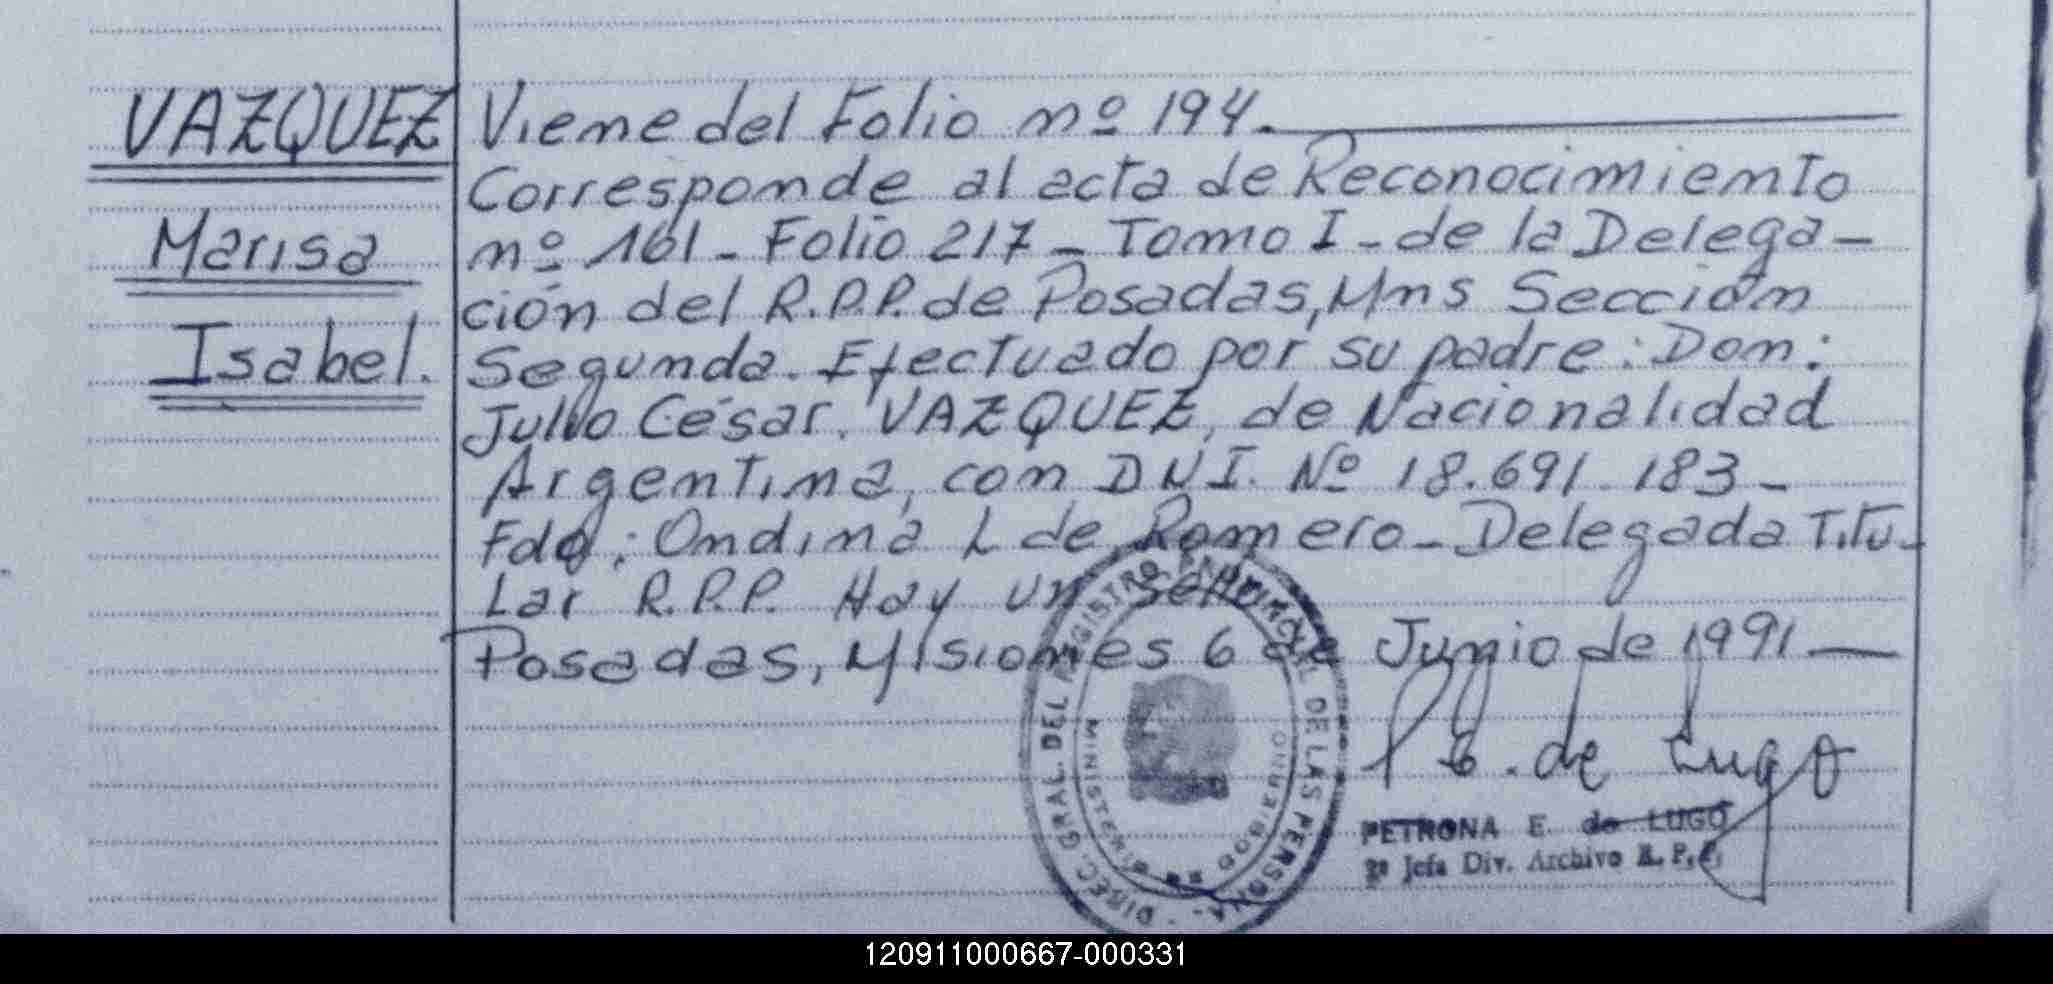 VAZQUEZ
Marisa
Isabel.
Viene del Folio nº 194.
Corresponde al acta de Reconocimiento
nº 161 - Folio 217 - Tomo I - de la Delega-
ción del R.P.P. de Posadas, Mns Sección
Segunda. Efectuado por su padre: Don:
Julio César. VAZQUEZ, de Nacionalidad
Argentina, con DNI. Nº 18.691.183 -
Fdo: Ondina L de Romero - Delegada Titu-
Lar R.P.P. Hay un sello
Posadas, Misiones 6 de Junio de 1991
P E. de Lugo
PETRONA E. de LUGO
2º Jefa Div. Archivo R. P. P.
DIREC. GRAL. DEL REGISTRO PROVINCIAL DE LAS PERSONAS
MINISTERIO DE GOBIERNO
120911000667-000331